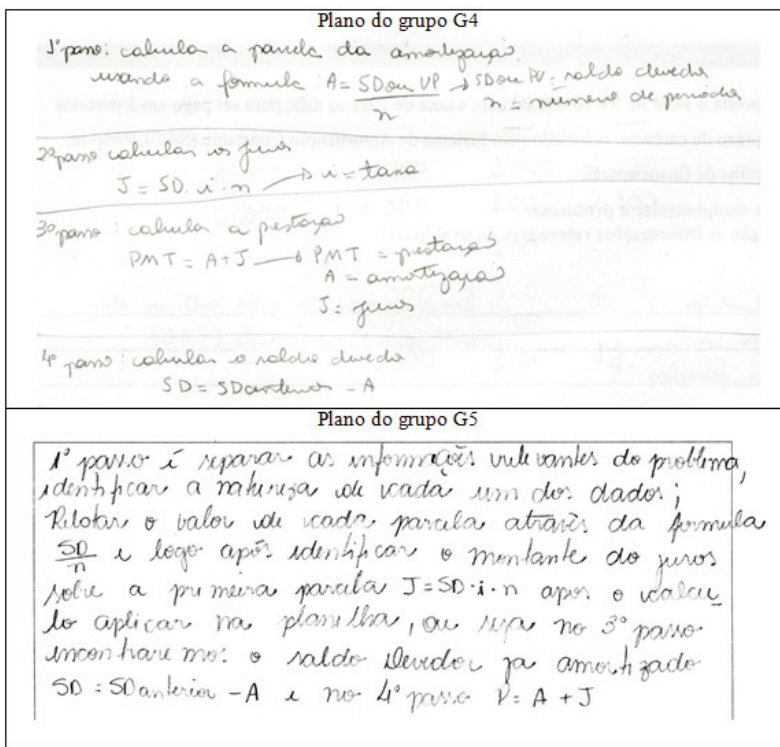 Plano do grupo G4
1º passo: calcula a parcela da amortização
usando a formula: A = SD ou VP → SD ou PV = saldo devedor
n n = número de periodos
2º passo: calcular os juros
J = SD . i . n → i = taxa
3º passo: calcula a prestação
PMT = A + J → PMT = prestação
A = amortização
J = juros
4º passo: calcular o saldo devedor
SD = SD anterior - A
Plano do grupo G5
1º passo é separar as informações relevantes do problema,
identificar a natureza de cada um dos dados;
o valor de cada parcela através da formula
SD/n e logo após identificar o montante do juros
sobre a primeira parcela J = SD . i . n apos o calcu
lo aplicar na planilha, ou seja no 3º passo
encontraremos o saldo devedor ja amortizado
SD = SD anterior - A e no 4º passo P = A + J